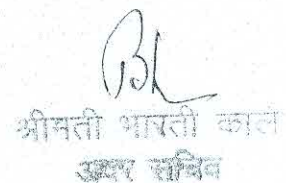 श्रीमती भारती काले
अवर सचिव